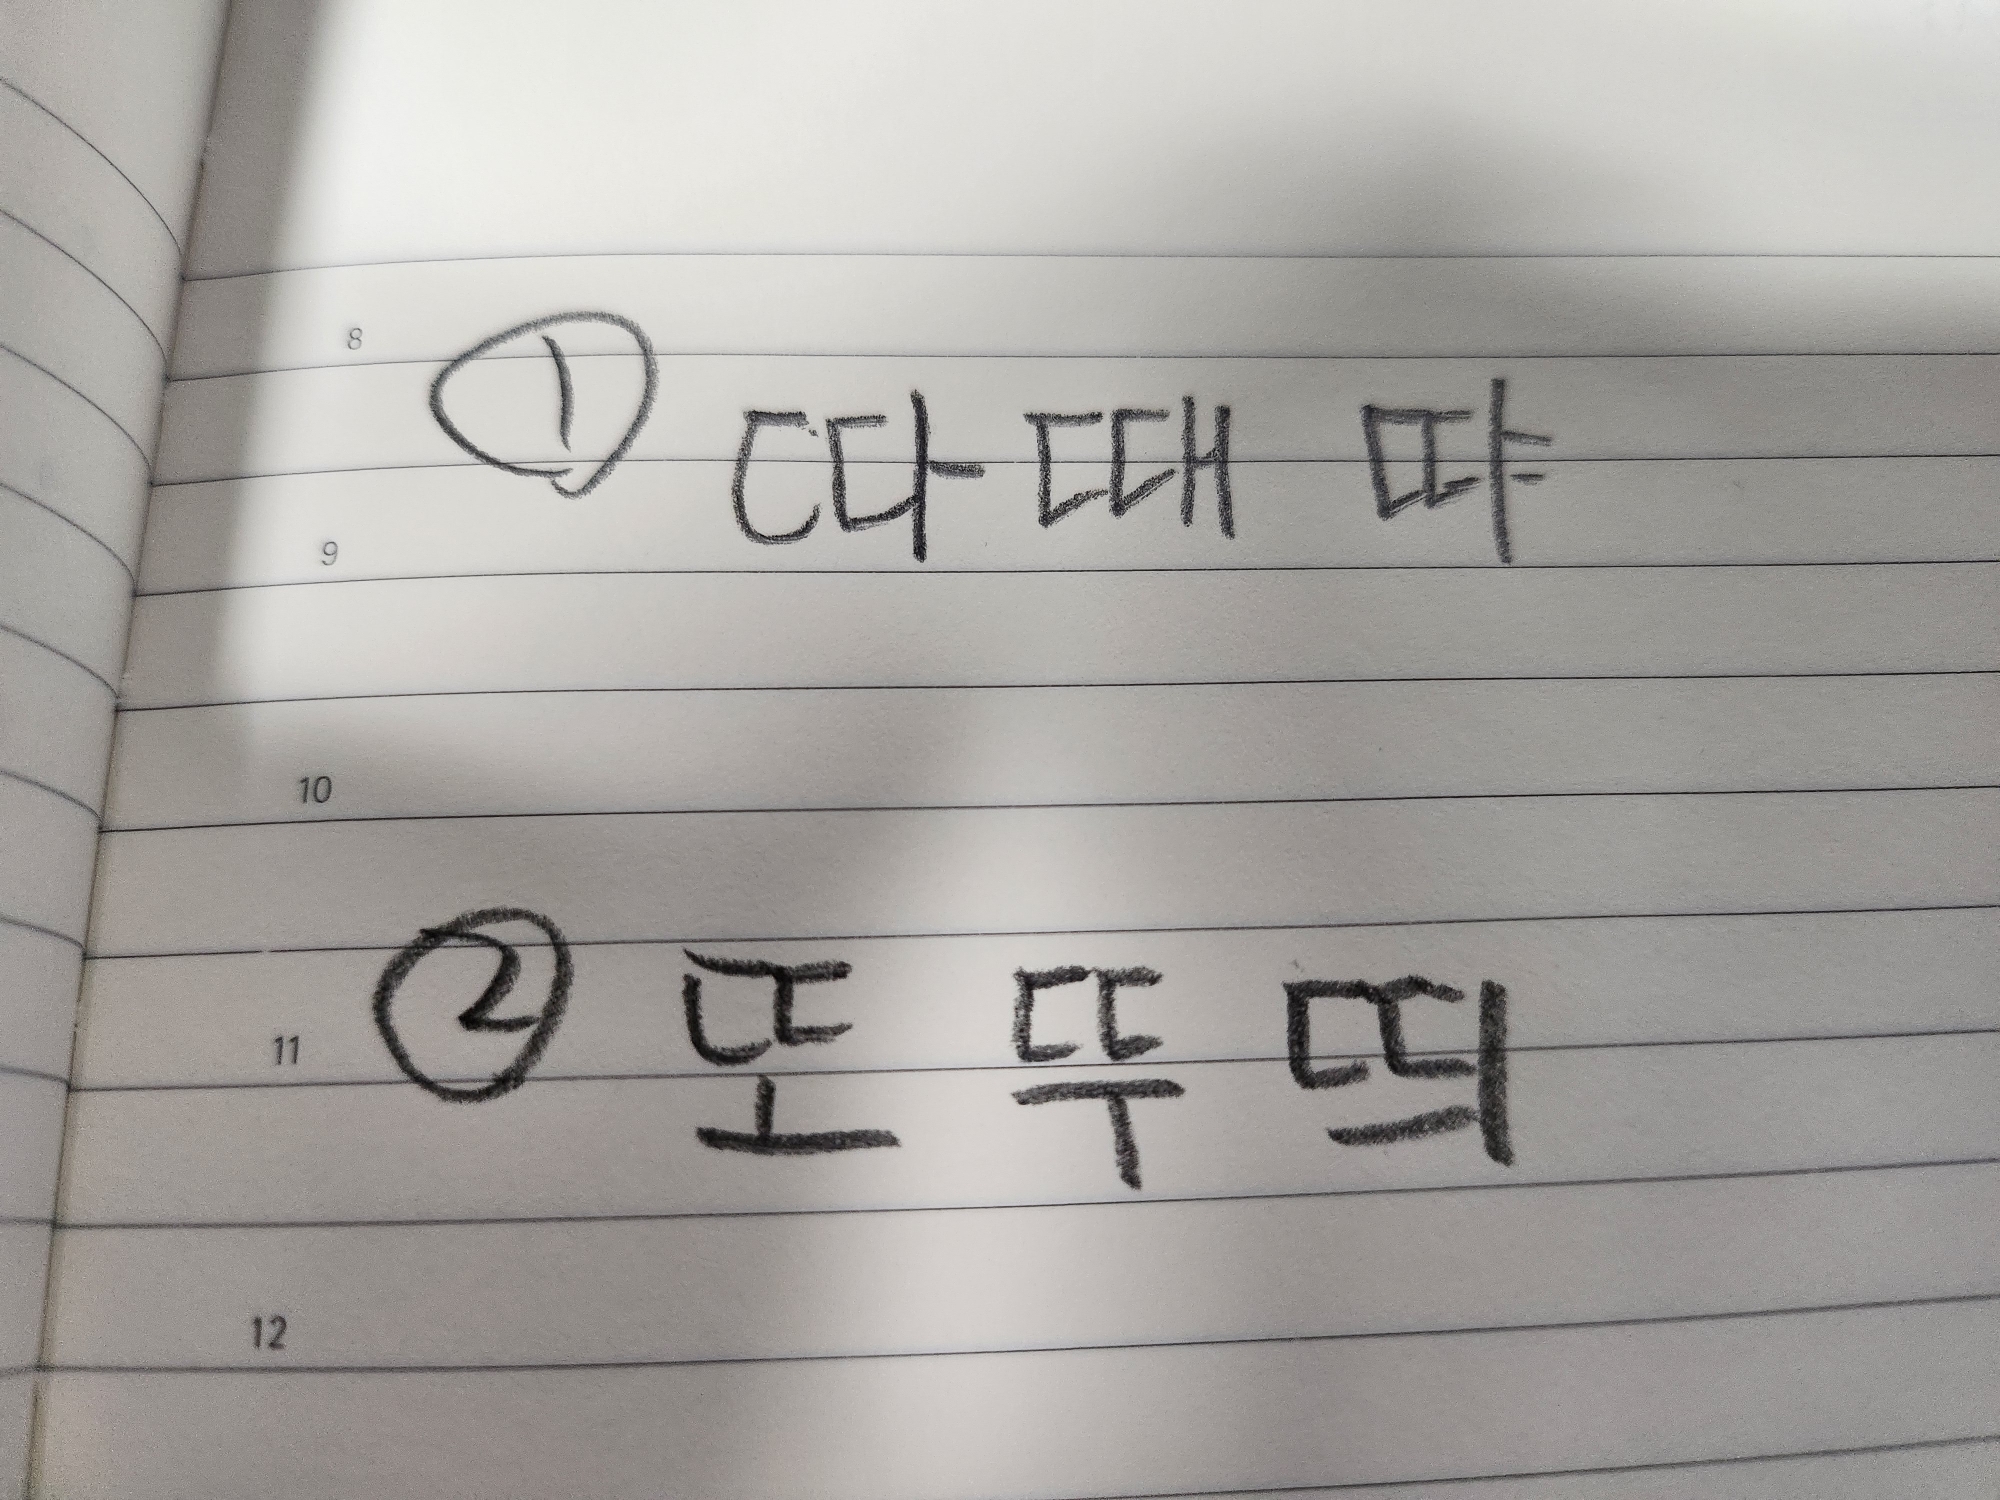 8
① 따 때 땨
9
10
② 또 뚜 띄
11
12